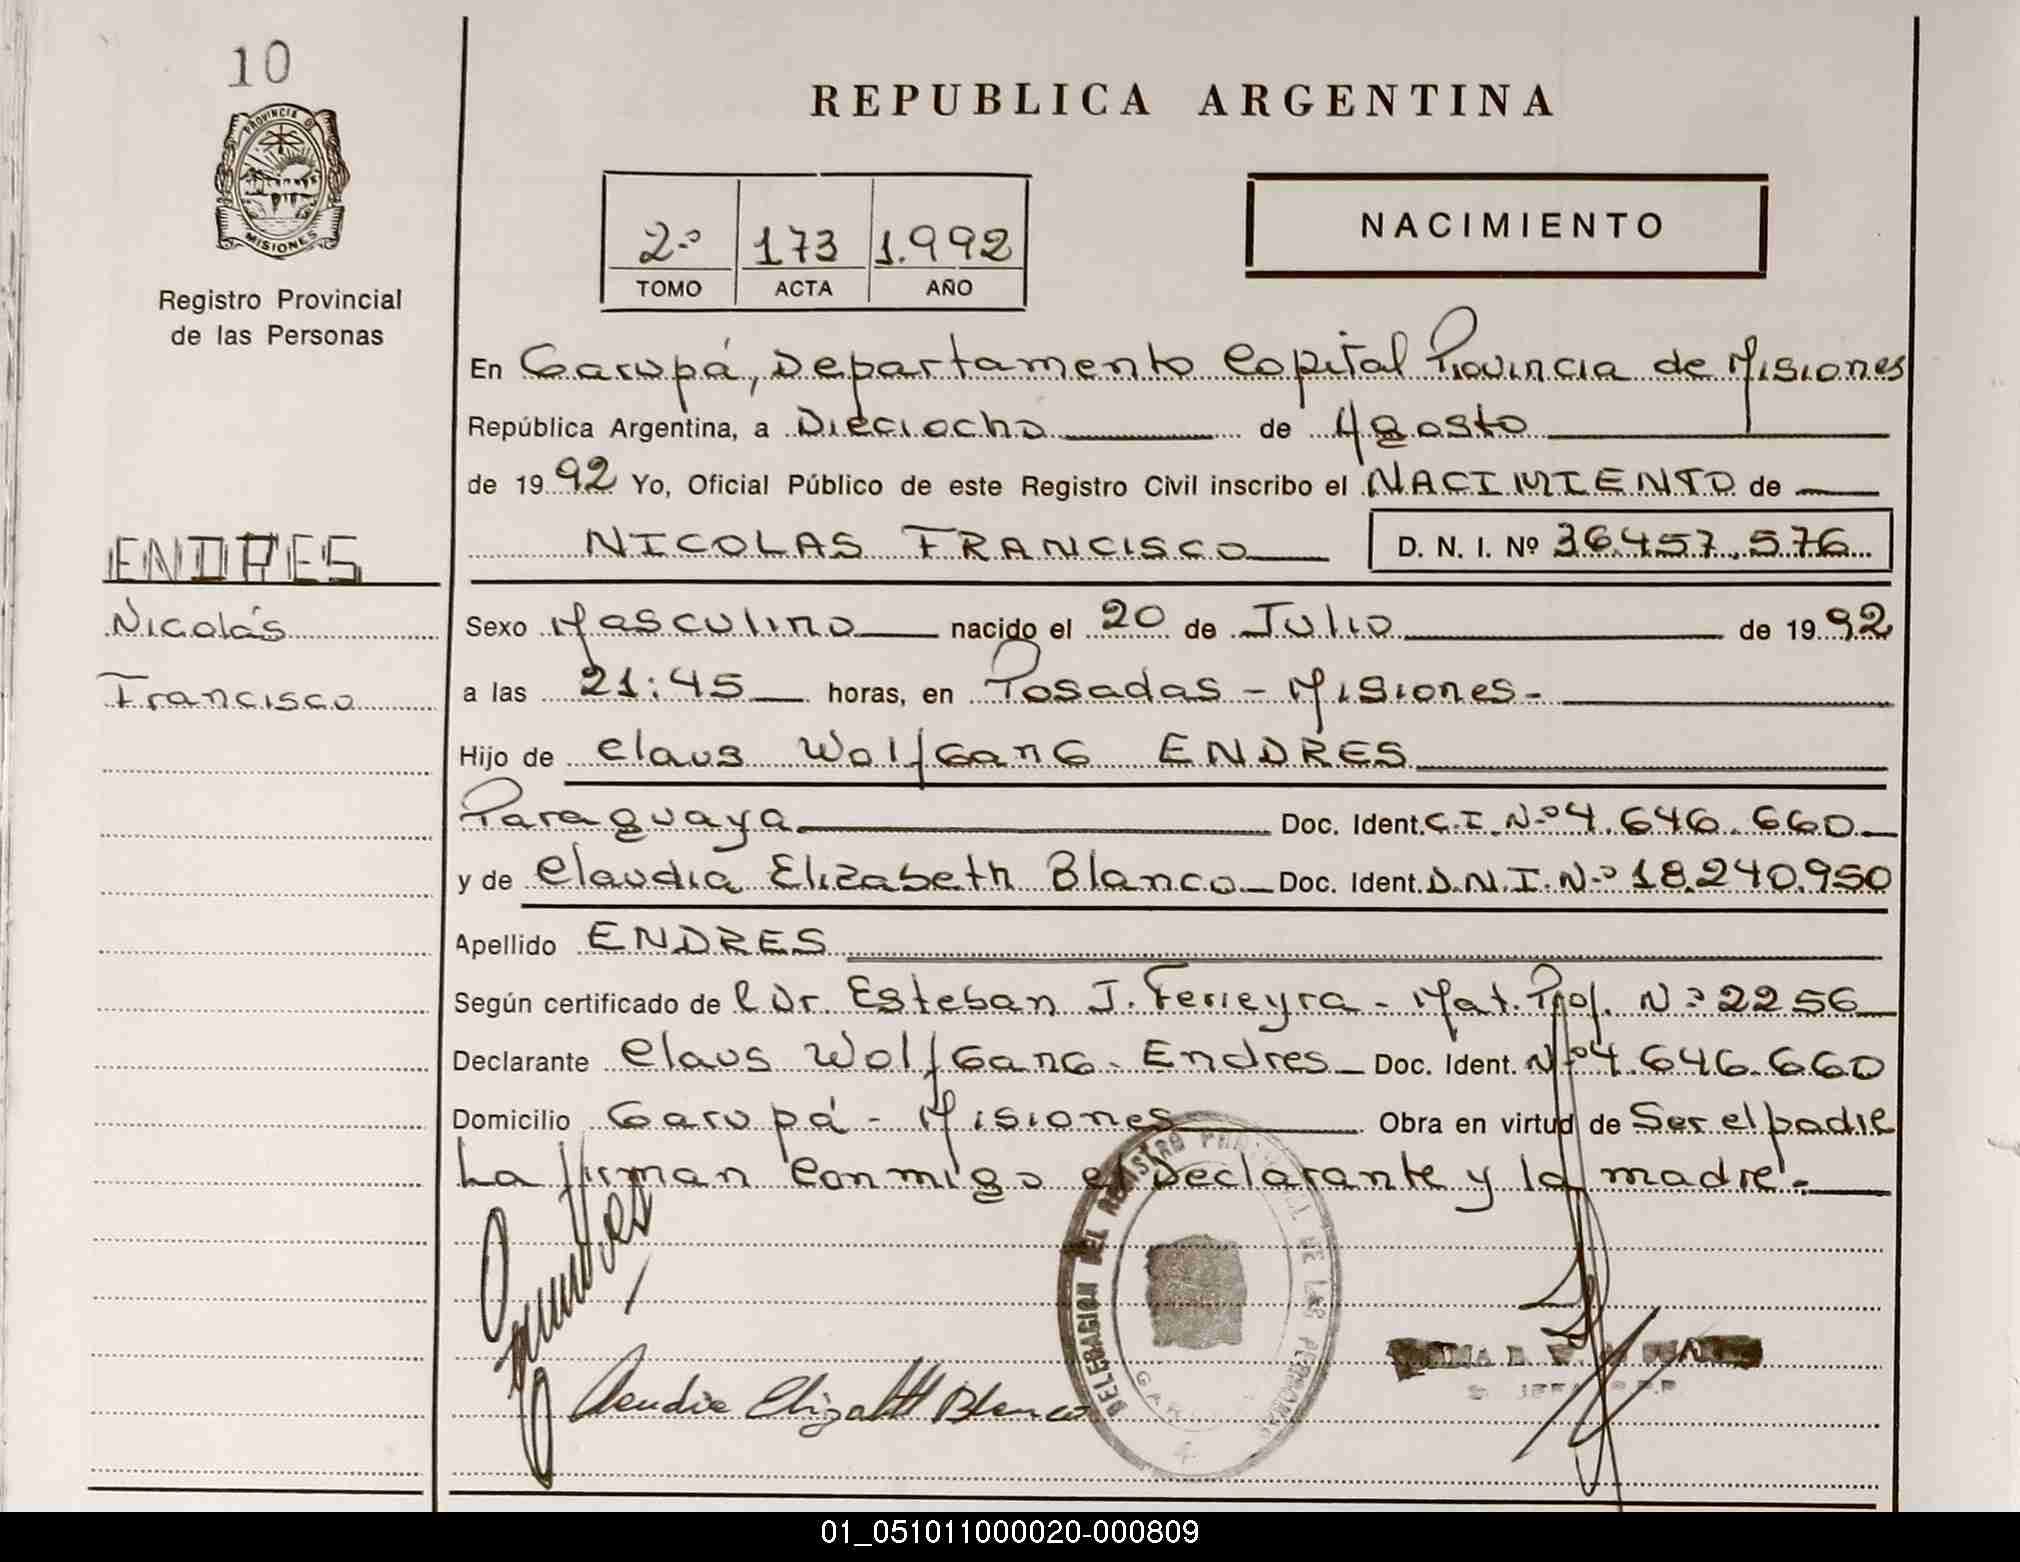 10
REPUBLICA ARGENTINA
PROVINCIA DE
MISIONES
Registro Provincial
de las Personas
2º 173 1.992
TOMO ACTA AÑO
NACIMIENTO
En Garupá, Departamento Capital Provincia de Misiones
República Argentina, a Dieciocho de Agosto
de 1992 Yo, Oficial Público de este Registro Civil inscribo el NACIMIENTO de
NICOLAS FRANCISCO D. N. I. Nº 36.457.576
ENDRES
Nicolás
Francisco
Sexo Masculino nacido el 20 de Julio de 1992
a las 21:45 horas, en Posadas - Misiones-
Hijo de Claus Wolfgang ENDRES
Paraguaya Doc. Ident. C.I. Nº 4.646.660
y de Claudia Elizabeth Blanco Doc. Ident. D.N.I. Nº 18.240.950
Apellido ENDRES
Según certificado de l Dr. Esteban J. Ferreyra - Mat. Prof. Nº 2256
Declarante Claus Wolfgang Endres Doc. Ident. Nº 4.646.660
Domicilio Garupá - Misiones Obra en virtud de Ser el padre
La firman conmigo el Declarante y la madre.-
DELEGACION DEL REGISTRO DE LAS PERSONAS
Claudia Elizabeth Blanco
01_051011000020-000809